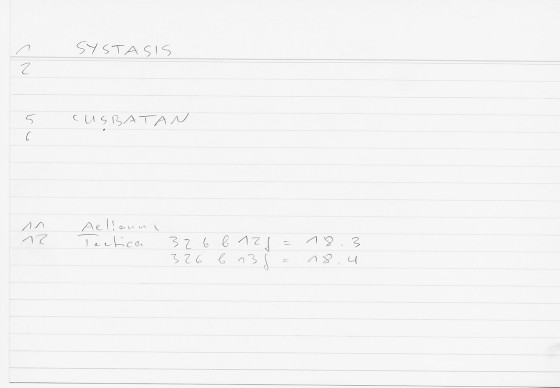 1 SYSTASIS
2
5 CUṢBATAN
6
11 Aelianus
12 Tactica 326 b 12f = 18.3
326 b 13f = 18.4